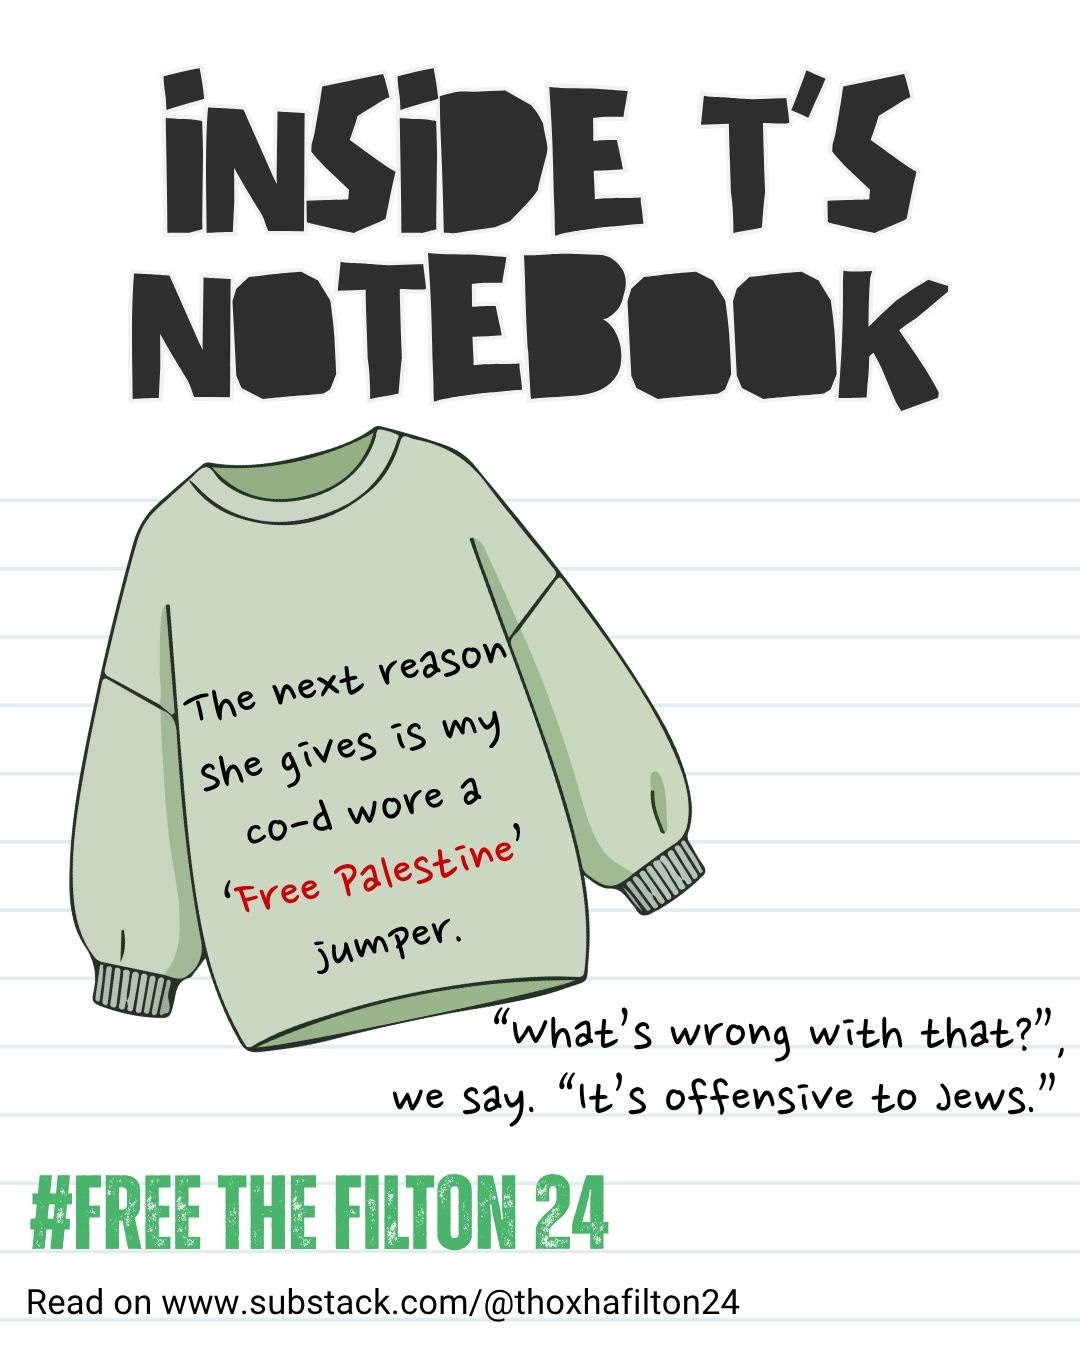 INSIDE T'S
NOTEBOOK
The next reason
she gives is my
co-d wore a
'Free Palestine'
jumper.
"What's wrong with that?",
we say. "It's offensive to Jews."
#FREE THE FILTON 24
Read on www.substack.com/@thoxhafilton24